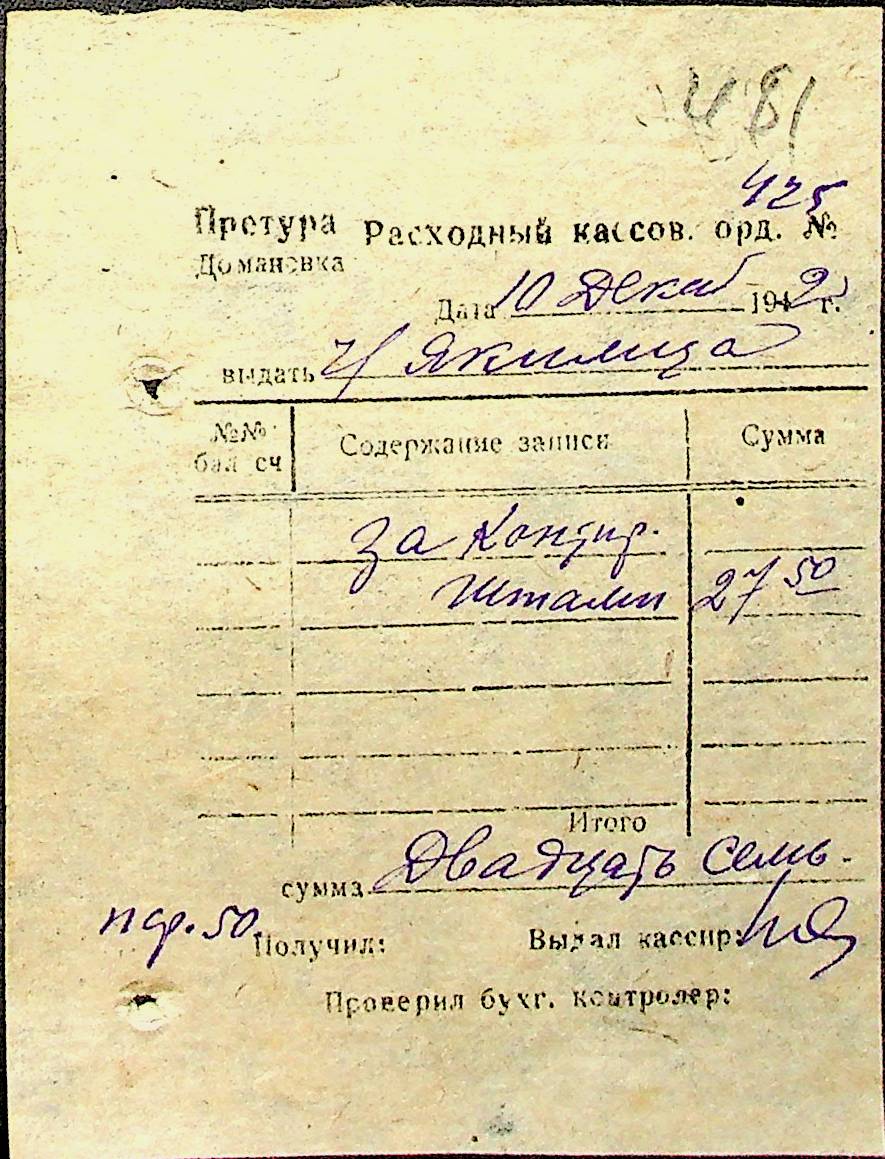 481
425
Претура Расходный кассов. орд. №
Домановка
Дата 10 Декаб 1942 г.
выдать Якимица
№№ бал сч Содержание записи Сумма
За
штамп 27 50
Итого
сумма Двадцать семь.
50. Получил: Выдал кассир:
Проверил бухг. контролер: